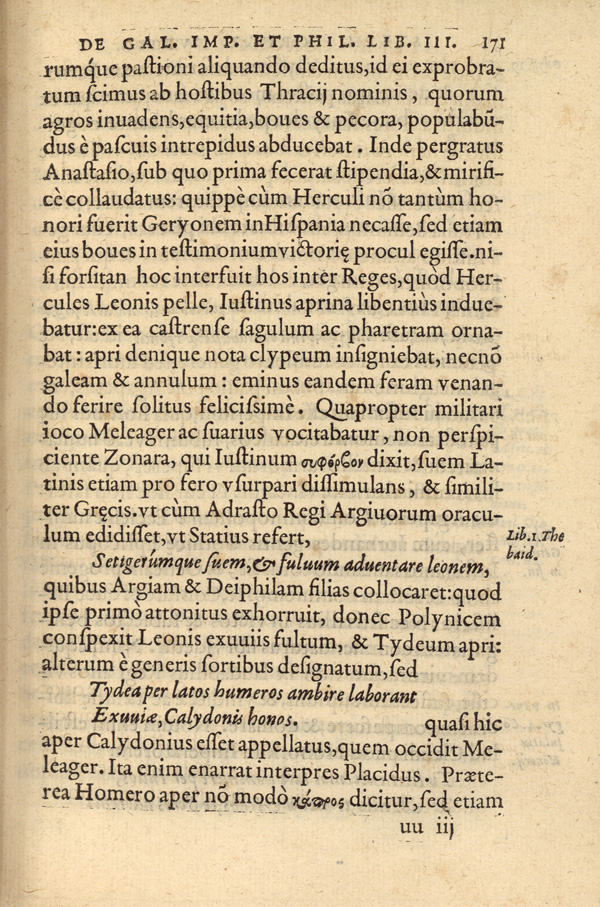 DE GAL. IMP. ET PHIL. LIB. III. 171
rumq́ue paſtioni aliquando deditus,id ei exprobra-
tum ſcimus ab hoſtibus Thracij nominis, quorum
agros inuadens,equitia,boues & pecora, populabũ-
dus è paſcuis intrepidus abducebat. Inde pergratus
Anaſtaſio,ſub quo prima fecerat ſtipendia,& mirifi-
cè collaudatus: quippè cùm Herculi nõ tantùm ho-
nori fuerit Geryonem in Hiſpania necaſſe,ſed etiam
eius boues in teſtimonium victorię procul egiſſe.ni-
ſi forſitan hoc interfuit hos inter Reges,quòd Her-
cules Leonis pelle, Iuſtinus aprina libentiùs indue-
batur:ex ea caſtrenſe ſagulum ac pharetram orna-
bat: apri denique nota clypeum inſigniebat, necnõ
galeam & annulum: eminus eandem feram venan-
do ferire ſolitus feliciſſimè. Quapropter militari
ioco Meleager ac ſuarius vocitabatur, non perſpi-
ciente Zonara, qui Iuſtinum συφόρβον dixit,ſuem La-
tinis etiam pro fero vſurpari diſſimulans, & ſimili-
ter Gręcis.vt cùm Adraſto Regi Argiuorum oracu-
lum edidiſſet,vt Statius refert,
Lib.1.The
baid.
Setigerúmque ſuem,& fuluum aduentare leonem,
quibus Argiam & Deiphilam filias collocaret:quod
ipſe primò attonitus exhorruit, donec Polynicem
conſpexit Leonis exuuiis fultum, & Tydeum apri:
alterum è generis ſortibus deſignatum,ſed
Tydea per latos humeros ambire laborant
Exuuiæ,Calydonis honos. quaſi hic
aper Calydonius eſſet appellatus,quem occidit Me-
leager. Ita enim enarrat interpres Placidus. Præte-
rea Homero aper nõ modò κάπρος dicitur,ſed etiam
uu iij